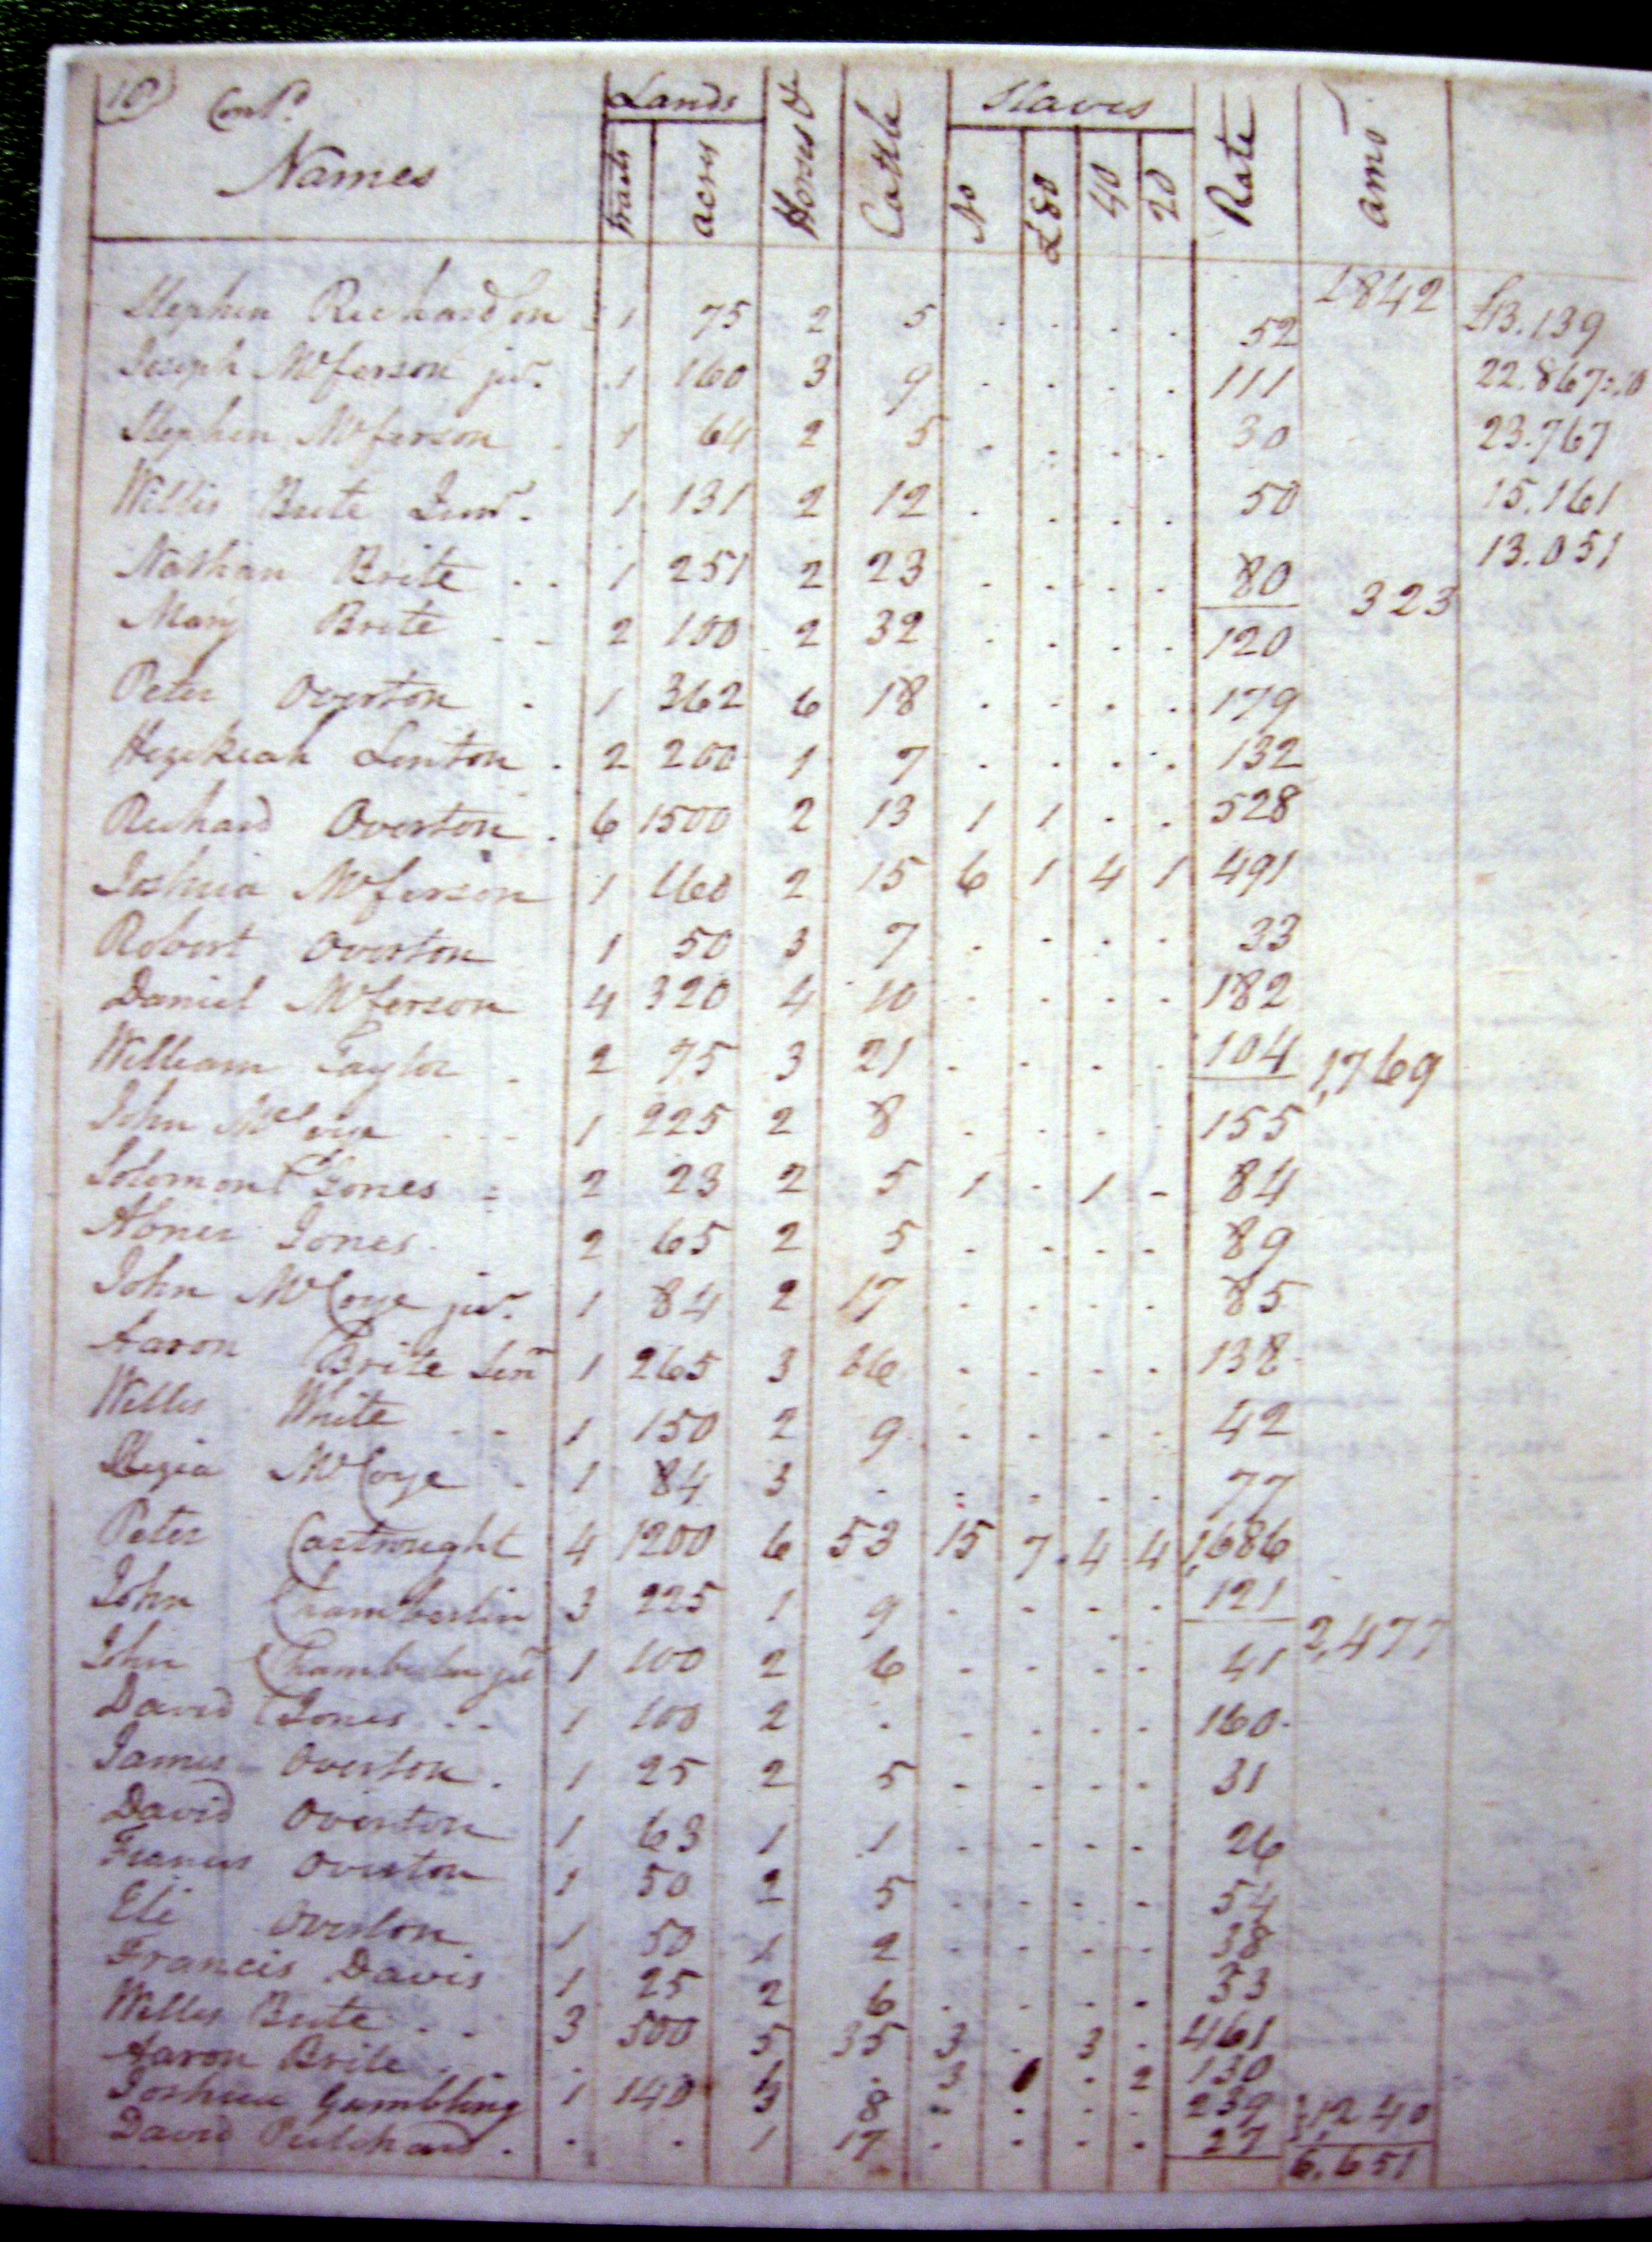 10 Cont.d
Names Lands Horses & Cattle Slaves Rate amo.t
tracts acres No £80 40 20
1842 £13.139
Stephen Richardson 1 75 2 5 . . . . 52
Joseph Mcferson jur. 1 160 3 9 . . . . 111 22.867:10
Stephen Mcferson 1 64 2 5 . . . . 30 23.767
Willis Brite Junr. 1 131 2 12 . . . . 50 15.161
13.051
Nathan Brite . . 1 251 2 23 . . . . 80 323
Mary Brite . . 2 100 2 32 . . . . 120
Peter Overton . 1 362 6 18 . . . . 179
Hezekiah Linton . 2 200 1 7 . . . . 132
Richard Overton . 6 1500 2 13 1 1 . . 528
Joshua Mcferson 1 160 2 15 6 1 4 1 491
Robert Overton 1 50 3 7 . . . . 33
Daniel Mcferson 4 320 4 10 . . . . 182
William Taylor . 2 75 3 21 . . . . 104 1,769
John McCoye . . . 1 225 2 8 . . . . 155
Solomon Jones = 2 23 2 5 1 . 1 - 84
Abner Jones . 2 65 2 5 . . . . 89
John McCoye jur. 1 84 2 17 . . . . 85
Aaron Brite Senr 1 265 3 16 . . . . 138
Willis White . . 1 150 2 9 . . . . 42
McCoye . 1 84 3 . . . . . 77
Peter Cartwright 4 1200 6 53 15 7 . 4 . 4 1,686
John Chamberlin 3 225 1 9 . . . . 121 2,477
John Chamberlin jur 1 100 2 6 . . . . 41
David Jones . . 1 100 2 . . . . . 160
James Overton . 1 25 2 5 . . . . 31
David Overton 1 63 1 1 . . . . 26
Francis Overton 1 50 2 5 . . . . 54
Eli Overton 1 50 1 2 . . . . 38
Francis Davis 1 25 2 6 . . . . 33
Willis Brite . . 3 500 5 35 3 . 3 . 461
Aaron Brite . . . . . 3 . 2 130
Joshua Gambling 1 140 3 8 . . . . 239 1,240
David Pritchard . . . 1 17 . . . . 27 6,651